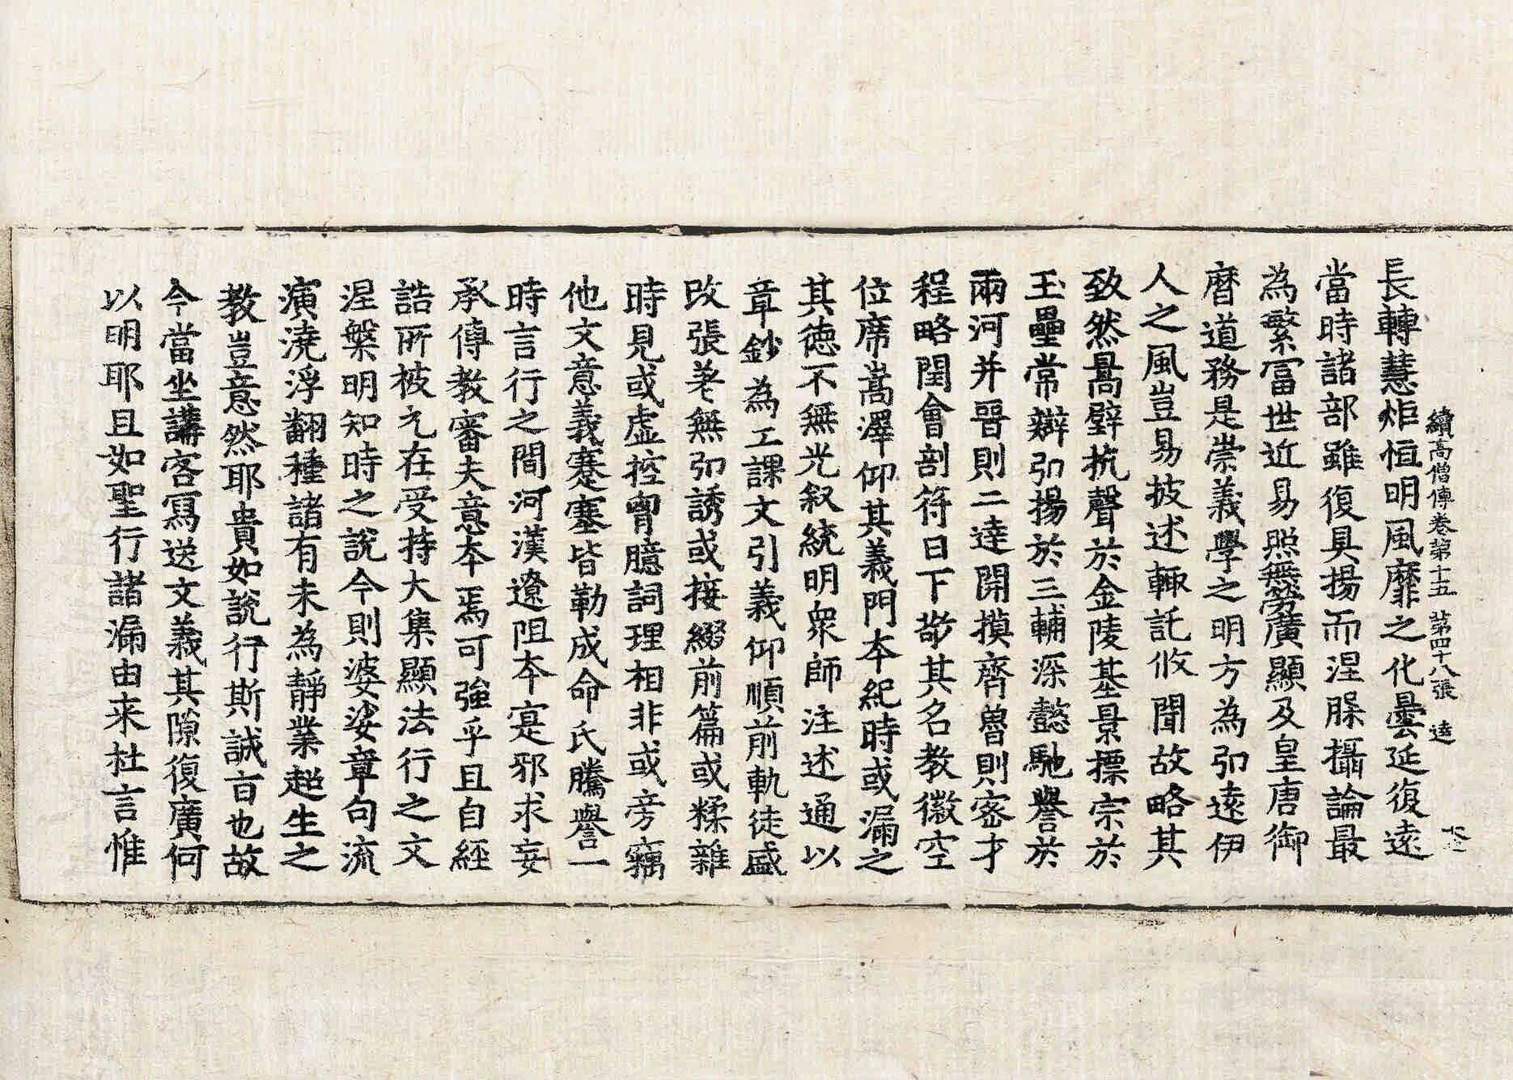 續高僧傳卷第十五 第四十八張 逵
長轉慧炬恒明風靡之化曇延復遠
當時諸部雖復具揚而涅脧攝論最
為繁富世近易照無勞廣顯及皇唐御
曆道務是崇義學之明方為弘遠伊
人之風豈易披述輒託攸聞故略其
致然暠壁抗聲於金陵基景摽宗於
玉壘常辯弘揚於三輔深懿馳譽於
兩河并晉則二達開摸齊魯則密才
程略閏會剖符日下敬其名教徽空
位席嵩澤仰其義門本紀時或漏之
其德不無光叙統明衆師注述通以
章鈔為工課文引義仰順前軌徒盛
改張差無弘誘或接綴前篇或糅雜
時見或虛控胷臆詞理相非或旁竊
他文意義蹇塞皆勒成命氏騰譽一
時言行之間河漢遼阻本寔邪求妄
承傳教審夫意本焉可強乎且自經
誥所被元在受持大集顯法行之文
涅槃明知時之說今則婆娑章句流
演澆浮翻種諸有未為靜業超生之
教豈意然耶貴如說行斯誠言也故
今當坐講客寫送文義其隙復廣何
以明耶且如聖行諸漏由來杜言惟